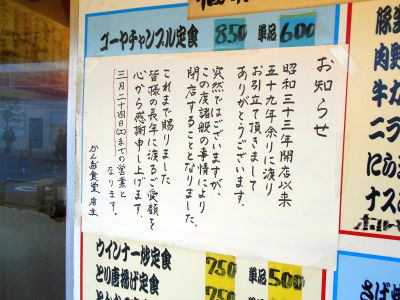 ゴーヤチャンプル定食 850 単品 600
お知らせ
昭和三十三年開店以来
五十九年余りに渡り
お引立て頂きまして
ありがとうございます。
突然ではございますが、
この度諸般の事情により
閉店することとなりました。
これまで賜りました
皆様の長年に渡るご愛顧を
心から感謝申し上げます。
三月二十四日(火)までの営業と
なります。
かんだ食堂 店主
ウインナー炒定食 750 単品 500
とり唐揚げ定食 750
豚
肉野
牛カ
ニラ
にら
ナス
ホルモ
さば焼